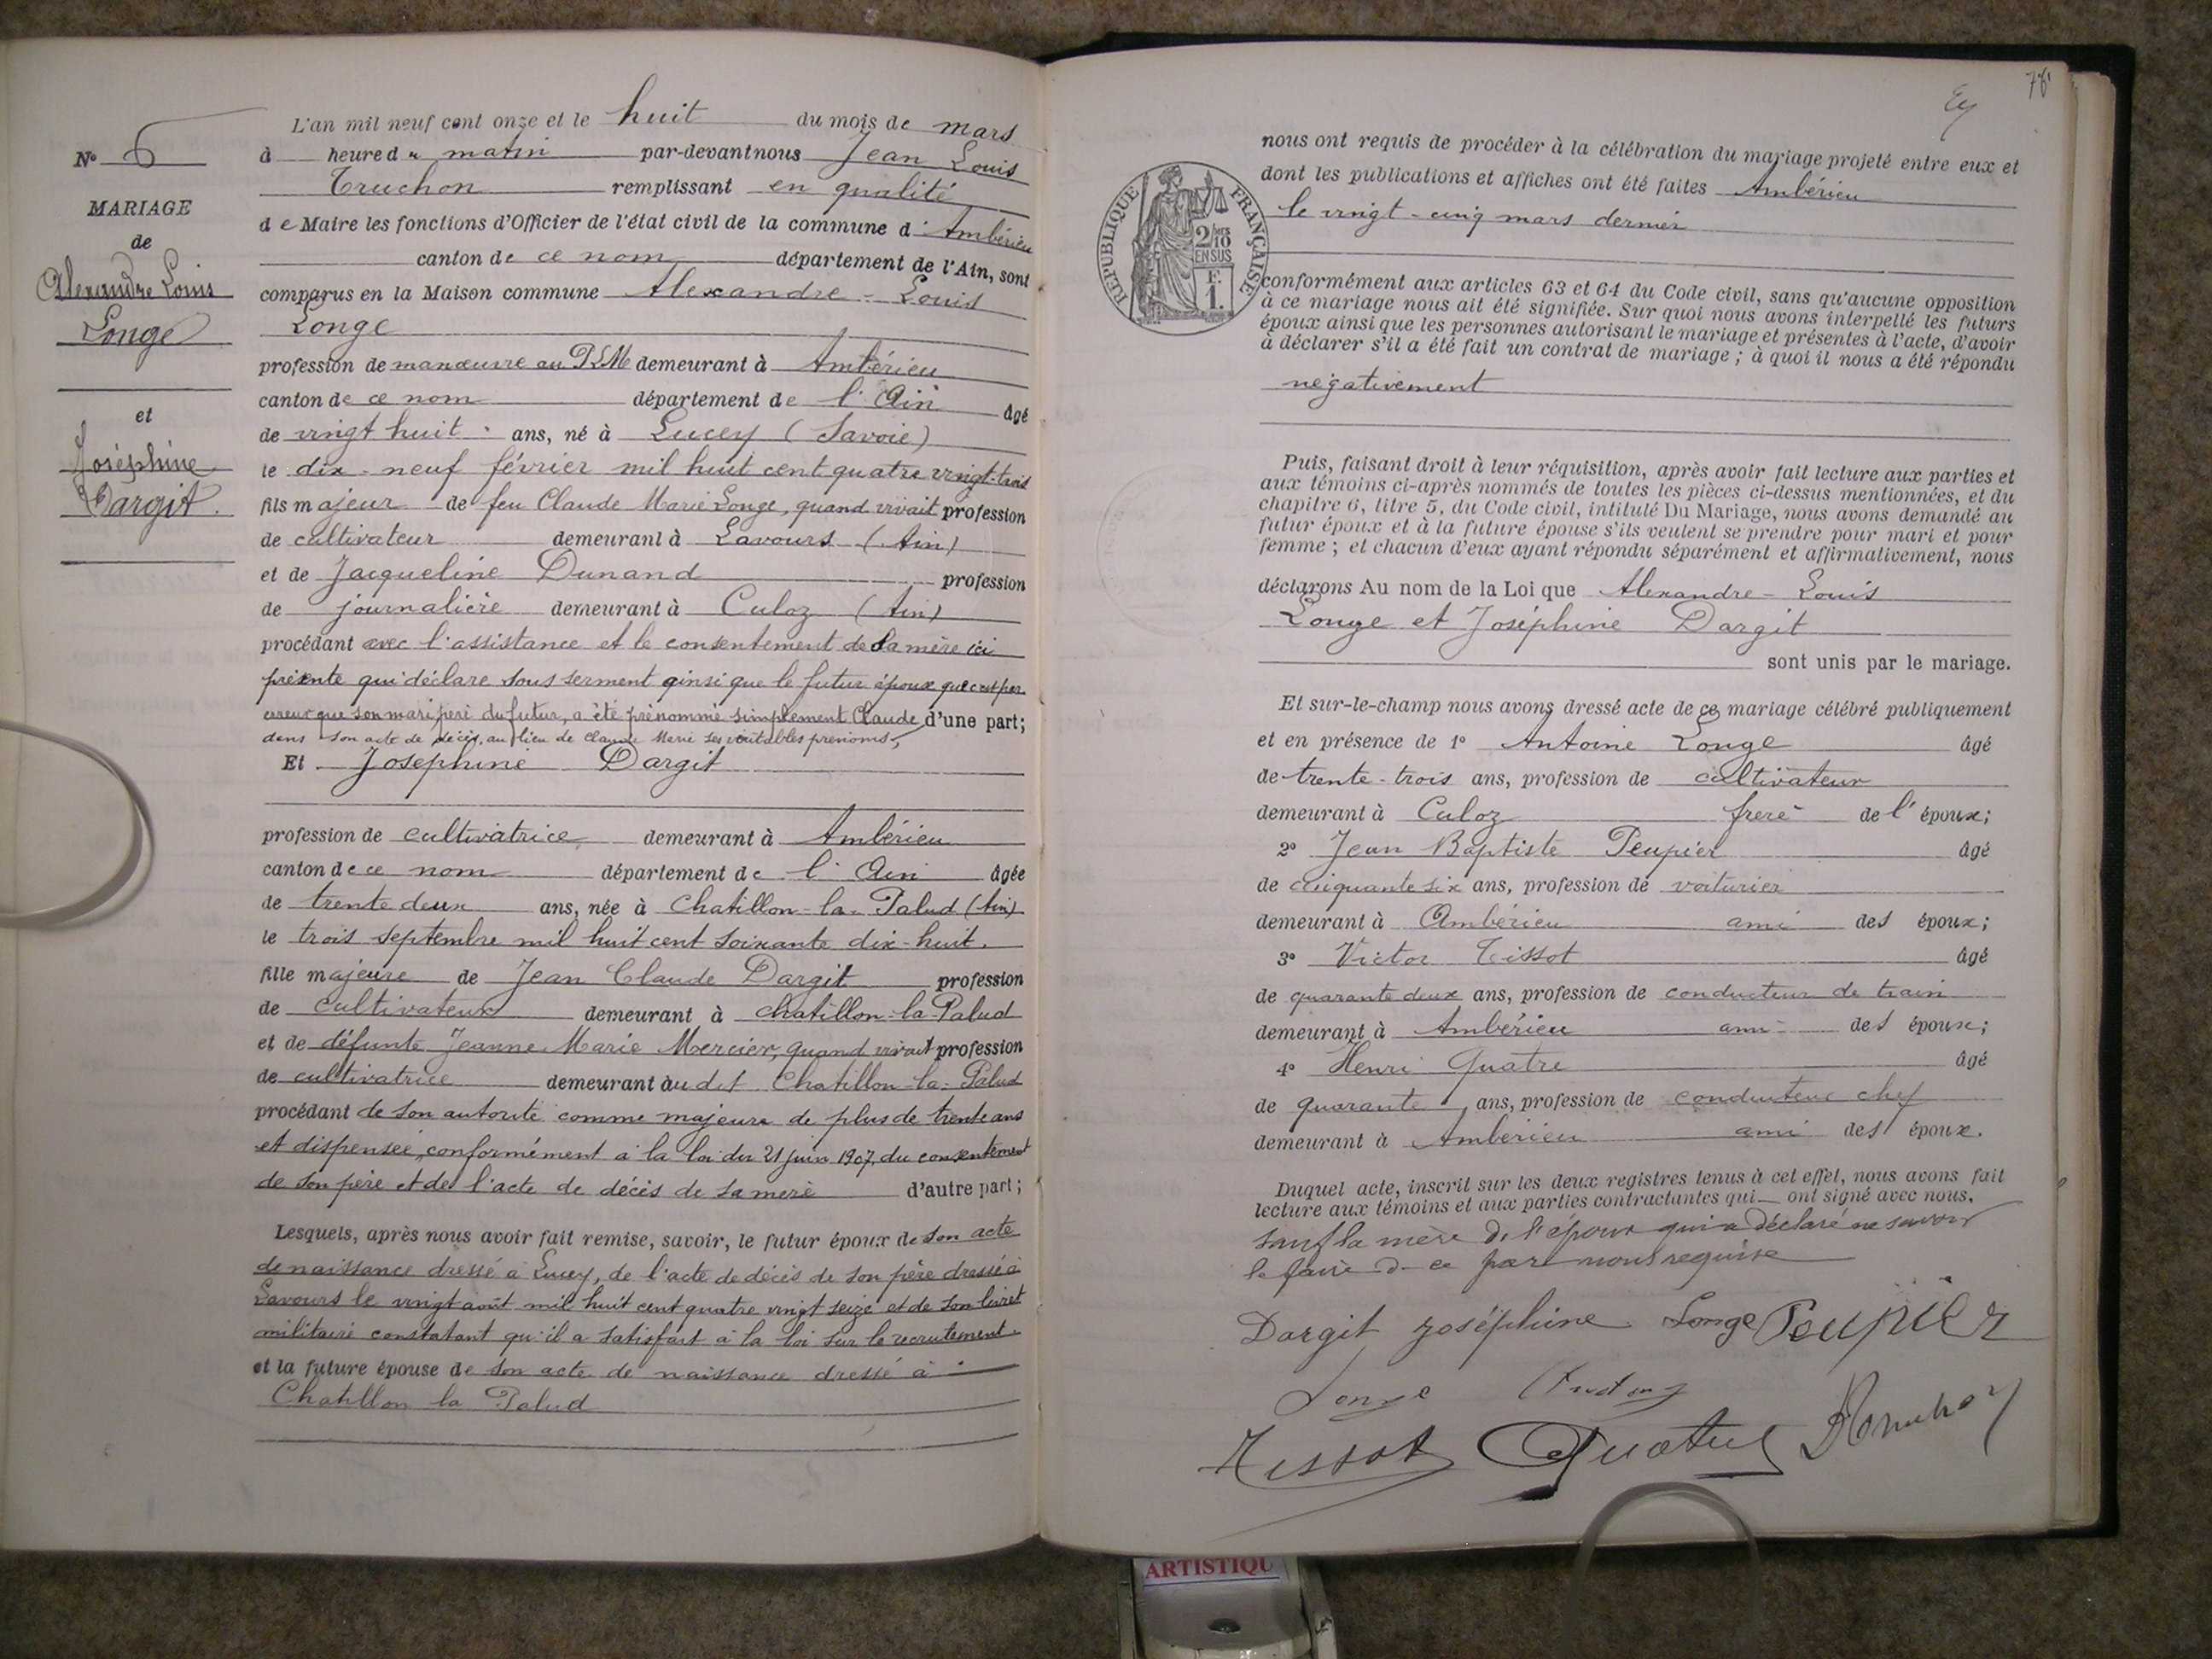 N° 6
MARIAGE
de
Alexandre Louis
Longe
et
Joséphine
Dargit.
L'an mil neuf cent onze et le huit du mois de mars
à heure du matin par-devant nous Jean Louis
Truchon remplissant en qualité
de Maire les fonctions d'Officier de l'état civil de la commune d'Ambérieu
canton de ce nom département de l'Ain, sont
comparus en la Maison commune Alexandre-Louis
Longe
profession de manœuvre au PLM demeurant à Ambérieu
canton de ce nom département de l'Ain âgé
de vingt huit ans, né à Lucey (Savoie)
le dix-neuf février mil huit cent quatre vingt-trois
fils majeur de feu Claude Marie Longe, quand vivait profession
de cultivateur demeurant à Lavours (Ain)
et de Jacqueline Dunand profession
de journalière demeurant à Culoz (Ain)
procédant avec l'assistance et le consentement de sa mère ici
présente qui déclare sous serment ainsi que le futur époux que c'est par
erreur que son mari, père du futur, a été prénommé simplement Claude d'une part;
dans son acte de décès, au lieu de Claude Marie ses véritables prénoms,
Et Joséphine Dargit
profession de cultivatrice demeurant à Ambérieu
canton de ce nom département de l'Ain âgée
de trente deux ans, née à Chatillon-la-Palud (Ain)
le trois septembre mil huit cent soixante dix-huit.
fille majeure de Jean Claude Dargit profession
de cultivateur demeurant à Chatillon-la-Palud
et de défunte Jeanne Marie Mercier, quand vivait profession
de cultivatrice demeurant au dit Chatillon-la-Palud
procédant de son autorité comme majeure de plus de trente ans
et dispensée, conformément à la loi du 21 juin 1907, du consentement
de son père et de l'acte de décès de sa mère d'autre part;
Lesquels, après nous avoir fait remise, savoir, le futur époux de son acte
de naissance dressé à Lucey, de l'acte de décès de son père dressé à
Lavours le vingt août mil huit cent quatre vingt seize et de son livret
militaire constatant qu'il a satisfait à la loi sur le recrutement.
et la future épouse de son acte de naissance dressé à
Chatillon la Palud
78
nous ont requis de procéder à la célébration du mariage projeté entre eux et
dont les publications et affiches ont été faites Ambérieu
le vingt-cinq mars dernier
RÉPUBLIQUE FRANÇAISE
2/10 EN SUS
F.
1.
conformément aux articles 63 et 64 du Code civil, sans qu'aucune opposition
à ce mariage nous ait été signifiée. Sur quoi nous avons interpellé les futurs
époux ainsi que les personnes autorisant le mariage et présentes à l'acte, d'avoir
à déclarer s'il a été fait un contrat de mariage; à quoi il nous a été répondu
négativement
Puis, faisant droit à leur réquisition, après avoir fait lecture aux parties et
aux témoins ci-après nommés de toutes les pièces ci-dessus mentionnées, et du
chapitre 6, titre 5, du Code civil, intitulé Du Mariage, nous avons demandé au
futur époux et à la future épouse s'ils veulent se prendre pour mari et pour
femme; et chacun d'eux ayant répondu séparément et affirmativement, nous
déclarons Au nom de la Loi que Alexandre-Louis
Longe et Joséphine Dargit
sont unis par le mariage.
Et sur-le-champ nous avons dressé acte de ce mariage célébré publiquement
et en présence de 1° Antoine Longe âgé
de trente-trois ans, profession de cultivateur
demeurant à Culoz frère de l'époux;
2° Jean Baptiste Peupier âgé
de cinquante six ans, profession de voiturier
demeurant à Ambérieu ami des époux;
3° Victor Tissot âgé
de quarante deux ans, profession de conducteur de train
demeurant à Ambérieu ami des époux;
4° Henri Quatre âgé
de quarante ans, profession de conducteur chef
demeurant à Ambérieu ami des époux.
Duquel acte, inscrit sur les deux registres tenus à cet effet, nous avons fait
lecture aux témoins et aux parties contractantes qui ont signé avec nous,
sauf la mère de l'époux qui a déclaré ne savoir
le faire de ce par nous requise
Dargit joséphine Longe Peupier
Longe
Tissot Quatre
ARTISTIQU